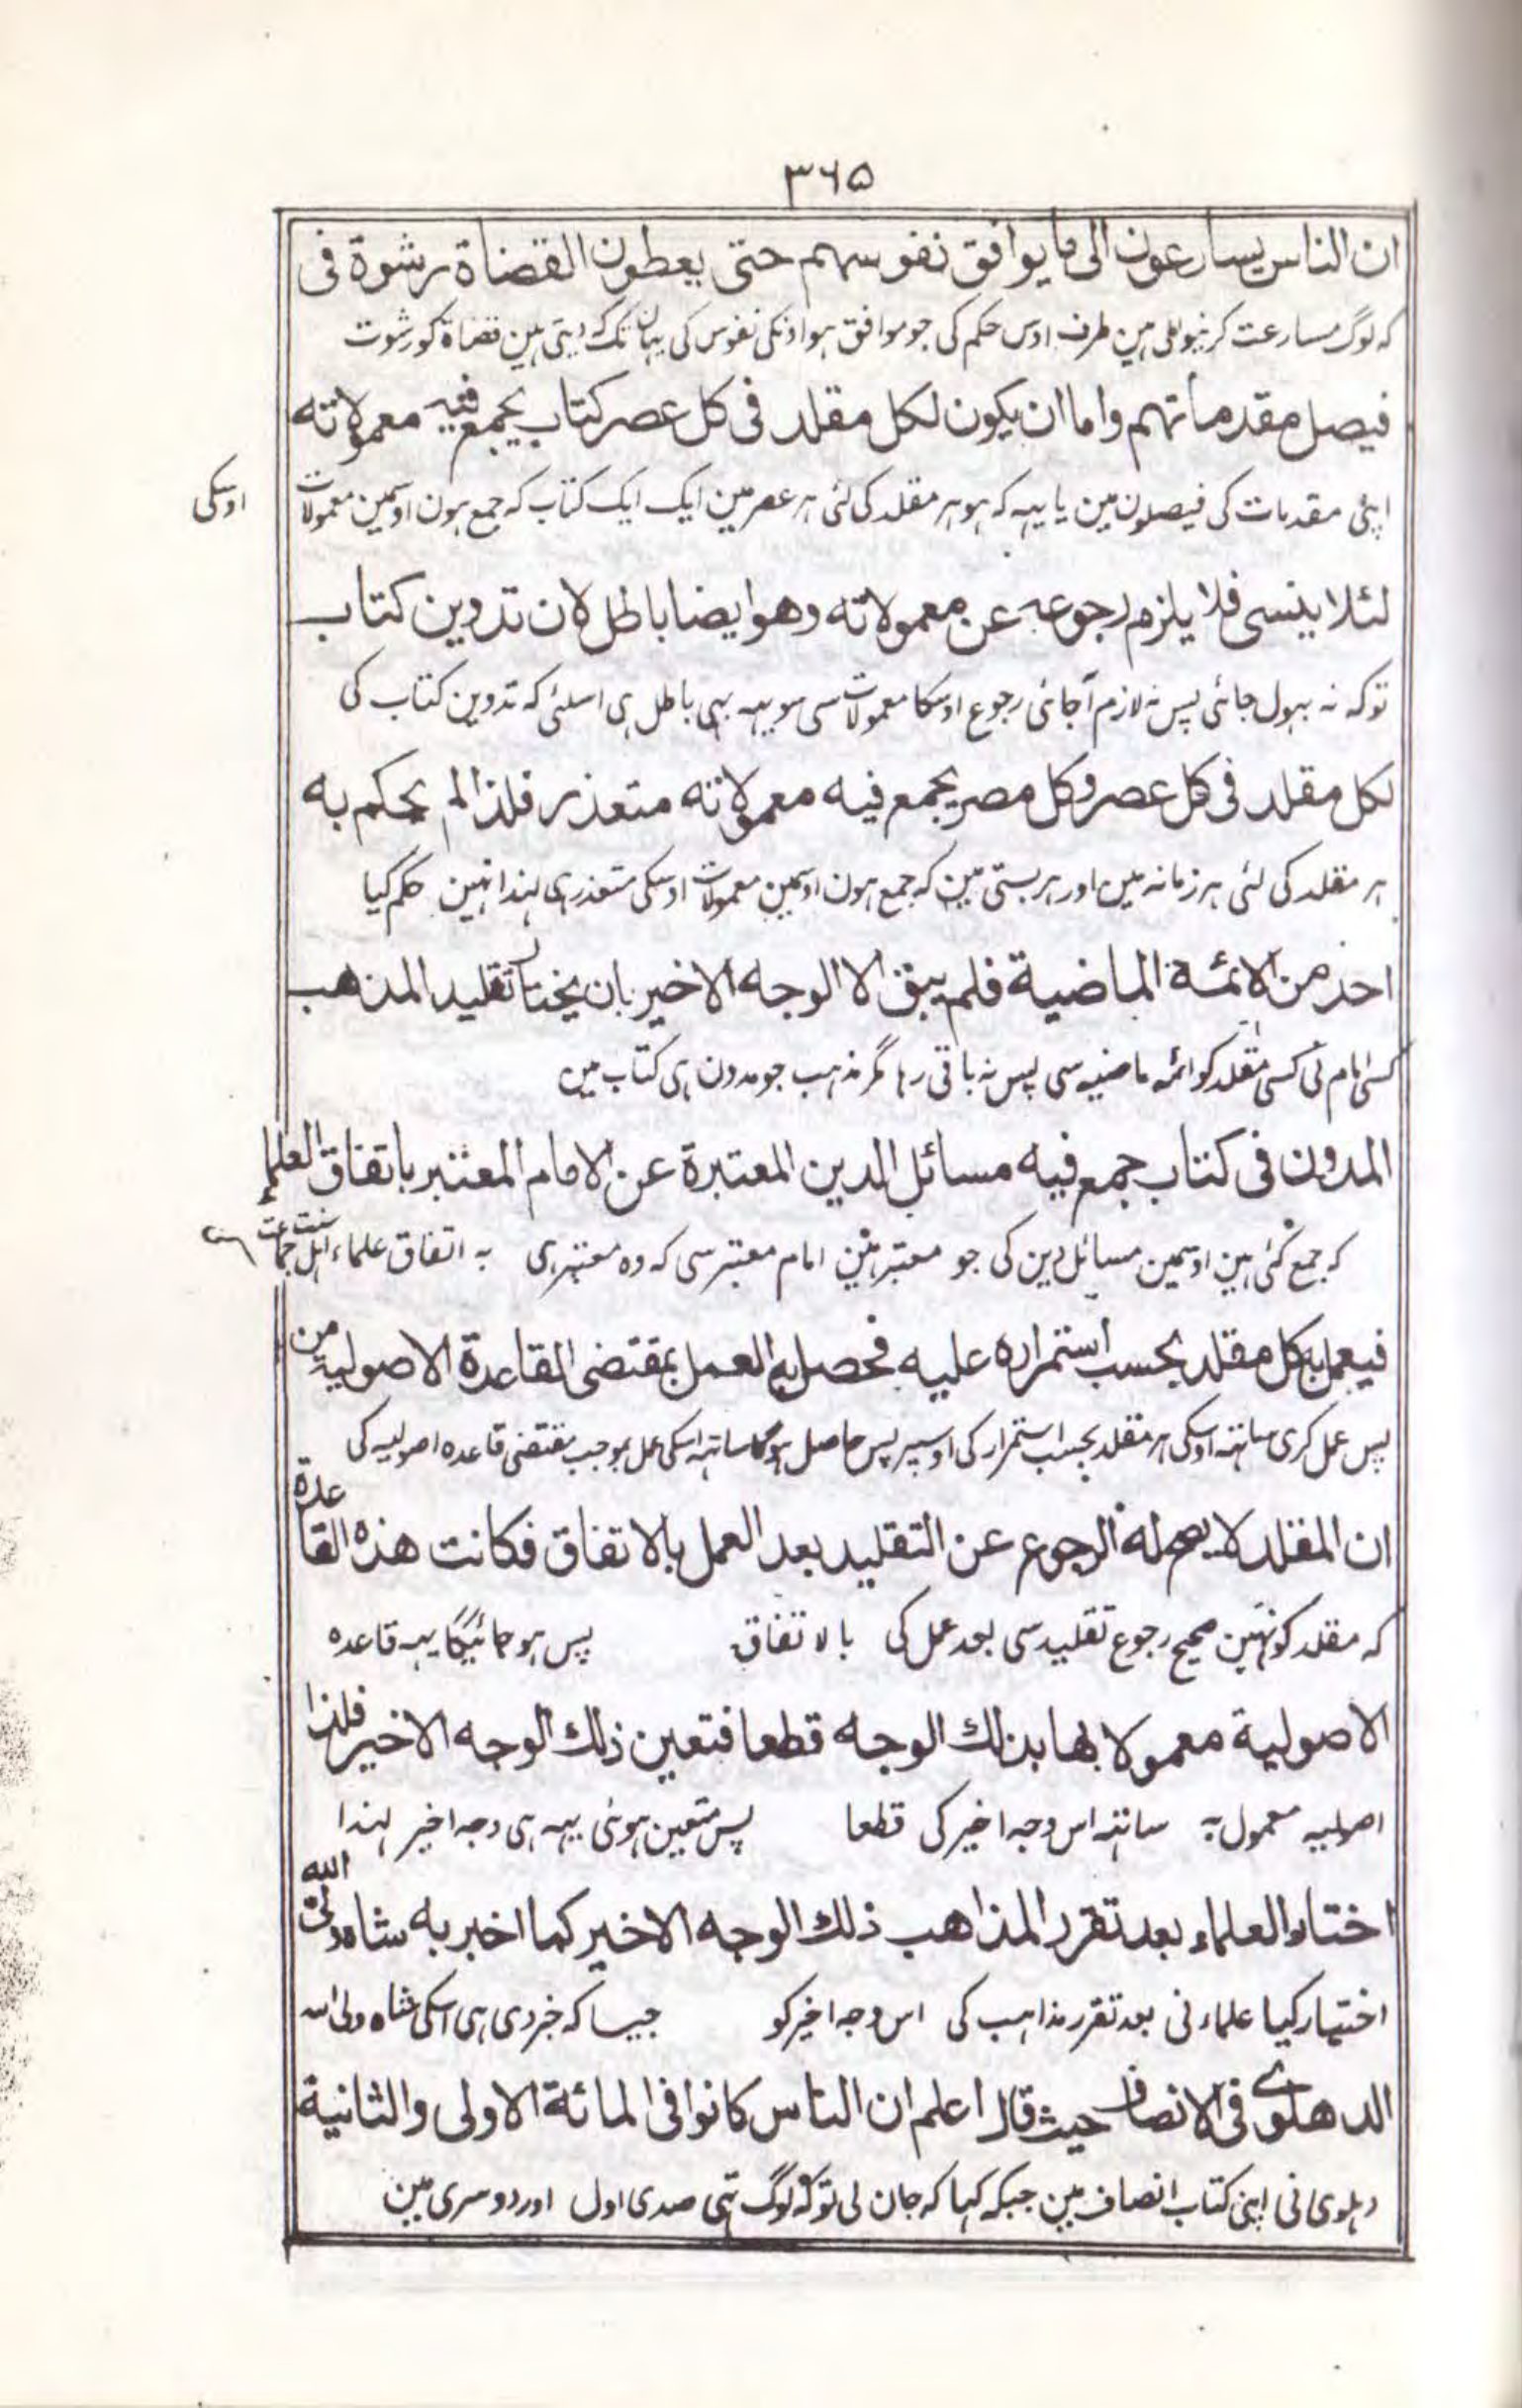 ۳۶۵
ان الناس يسارعون الى ما يوافق نفوسهم حتى يعطون القضاة رشوة فى
کہ لوگ مسارعت کرنیوالی ہین طرف اوس حکم کی جو موافق ہو اونکی نفوس کی یہان تک کہ دیتی ہین قضاة کو رشوت
فيصل مقدماتهم واما ان يكون لكل مقلد فى كل عصر كتاب يجمع فيه معمولاته
اپنی مقدمات کی فیصلون مین یا یہہ کہ ہو ہر مقلد کی لئی ہر عصر مین ایک ایک کتاب کہ جمع ہون اوسمین معمولات اوسکی
لئلا ينسى فلا يلزم رجوعه عن معمولاته وهو ايضا باطل لان تدوين كتاب
توکہ نہ بہول جائی پس نہ لازم آجائی رجوع اوسکا معمولات سی سو یہہ بہی باطل ہی اسلئی کہ تدوین کتاب کی
لكل مقلد فى كل عصر وكل مصر يجمع فيه معمولاته متعذر فلذا لم يحكم به
ہر مقلد کی لئی ہر زمانہ مین اور ہر بستی مین کہ جمع ہون اوسمین معمولات اوسکی متعذر ہی لہذا نہین حکم کیا
احد من الائمة الماضية فلم يبق الا الوجه الاخير بان يختار تقليد المذهب
کسی امام نی کسی مقلد کو ائمہ ماضیہ سی پس نہ باقی رہا مگر مذہب جو مدون ہی کتاب مین
المدون فى كتاب جمع فيه مسائل الدين المعتبرة عن الامام المعتبر باتفاق العلماء
کہ جمع کئی ہین اوسمین مسائل دین کی جو معتبر ہین امام معتبر سی کہ وہ معتبر ہی بہ اتفاق علماء اہل سنت جماعت
فيعمل به كل مقلد بحسب استمراره عليه فحصل به العمل بمقتضى القاعدة الاصولية من
پس عمل کری ساتہہ اوسکی ہر مقلد بحسب استمرار کی اوسپر پس حاصل ہوگا ساتہہ اسکی عمل بموجب مقتضی قاعدہ اصولیہ کی
ان المقلد لا يصح له الرجوع عن التقليد بعد العمل بالاتفاق فكانت هذه القاعدة
کہ مقلد کو نہین صحیح رجوع تقلید سی بعد عمل کی بالاتفاق پس ہو جائیگا یہہ قاعدہ
الاصولية معمولا بها بذلك الوجه قطعا فتعين ذلك الوجه الاخير فلذا
اصولیہ معمول بہ ساتہہ اس وجہ اخیر کی قطعا پس متعین ہوئی یہہ ہی وجہ اخیر لہذا
اختار العلماء بعد تقرر المذاهب ذلك الوجه الاخير كما اخبر به شاه ولى الله
اختیار کیا علماء نی بعد تقرر مذاہب کی اس وجہ اخیر کو جیسا کہ خبر دی ہی اسکی شاہ ولی اللہ
الدهلوى فى الانصاف حيث قال اعلم ان الناس كانوا فى المائة الاولى والثانية
دہلوی نی اپنی کتاب انصاف مین جبکہ کہا کہ جان لی تو کہ لوگ تہی صدی اول اور دوسری مین